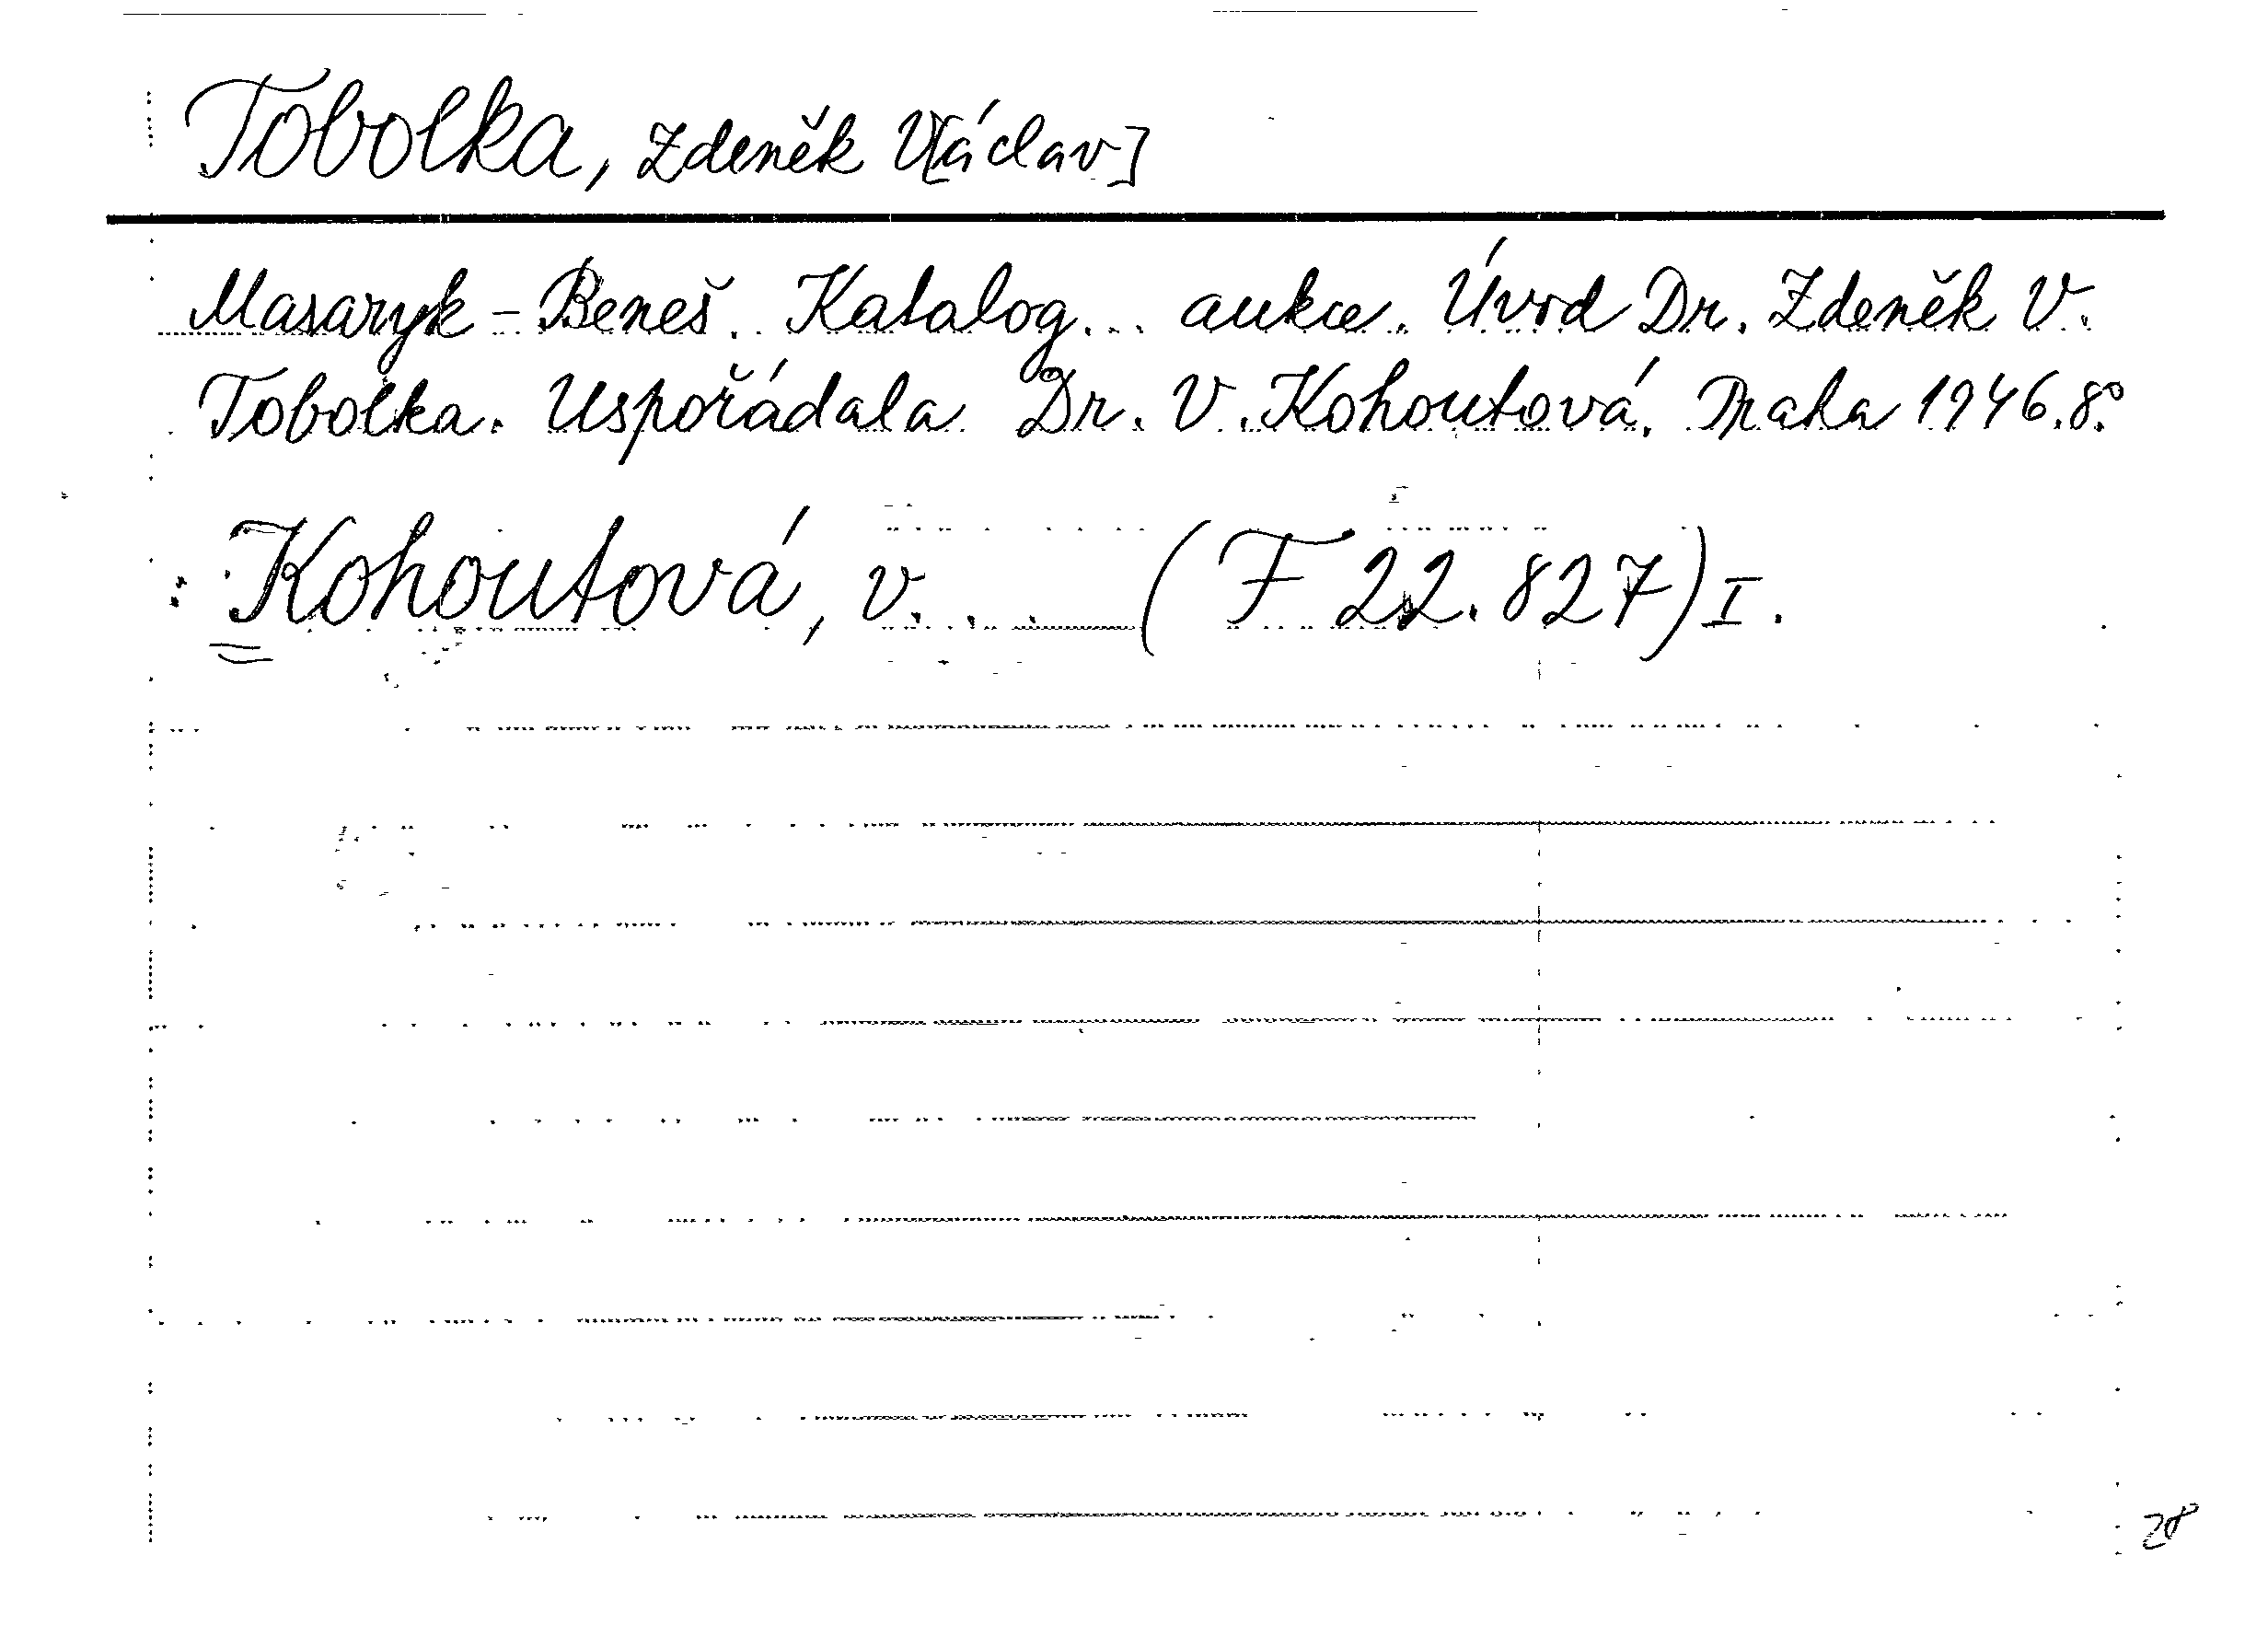 Tobolka, Zdeněk V[áclav]
Masaryk - Beneš. Katalog... aukce. Úvod Dr. Zdeněk V.
Tobolka. Uspořádala Dr. V. Kohoutová. Praha 1946. 8°.
Kohoutová, V. . . (F 22.827) I.
28